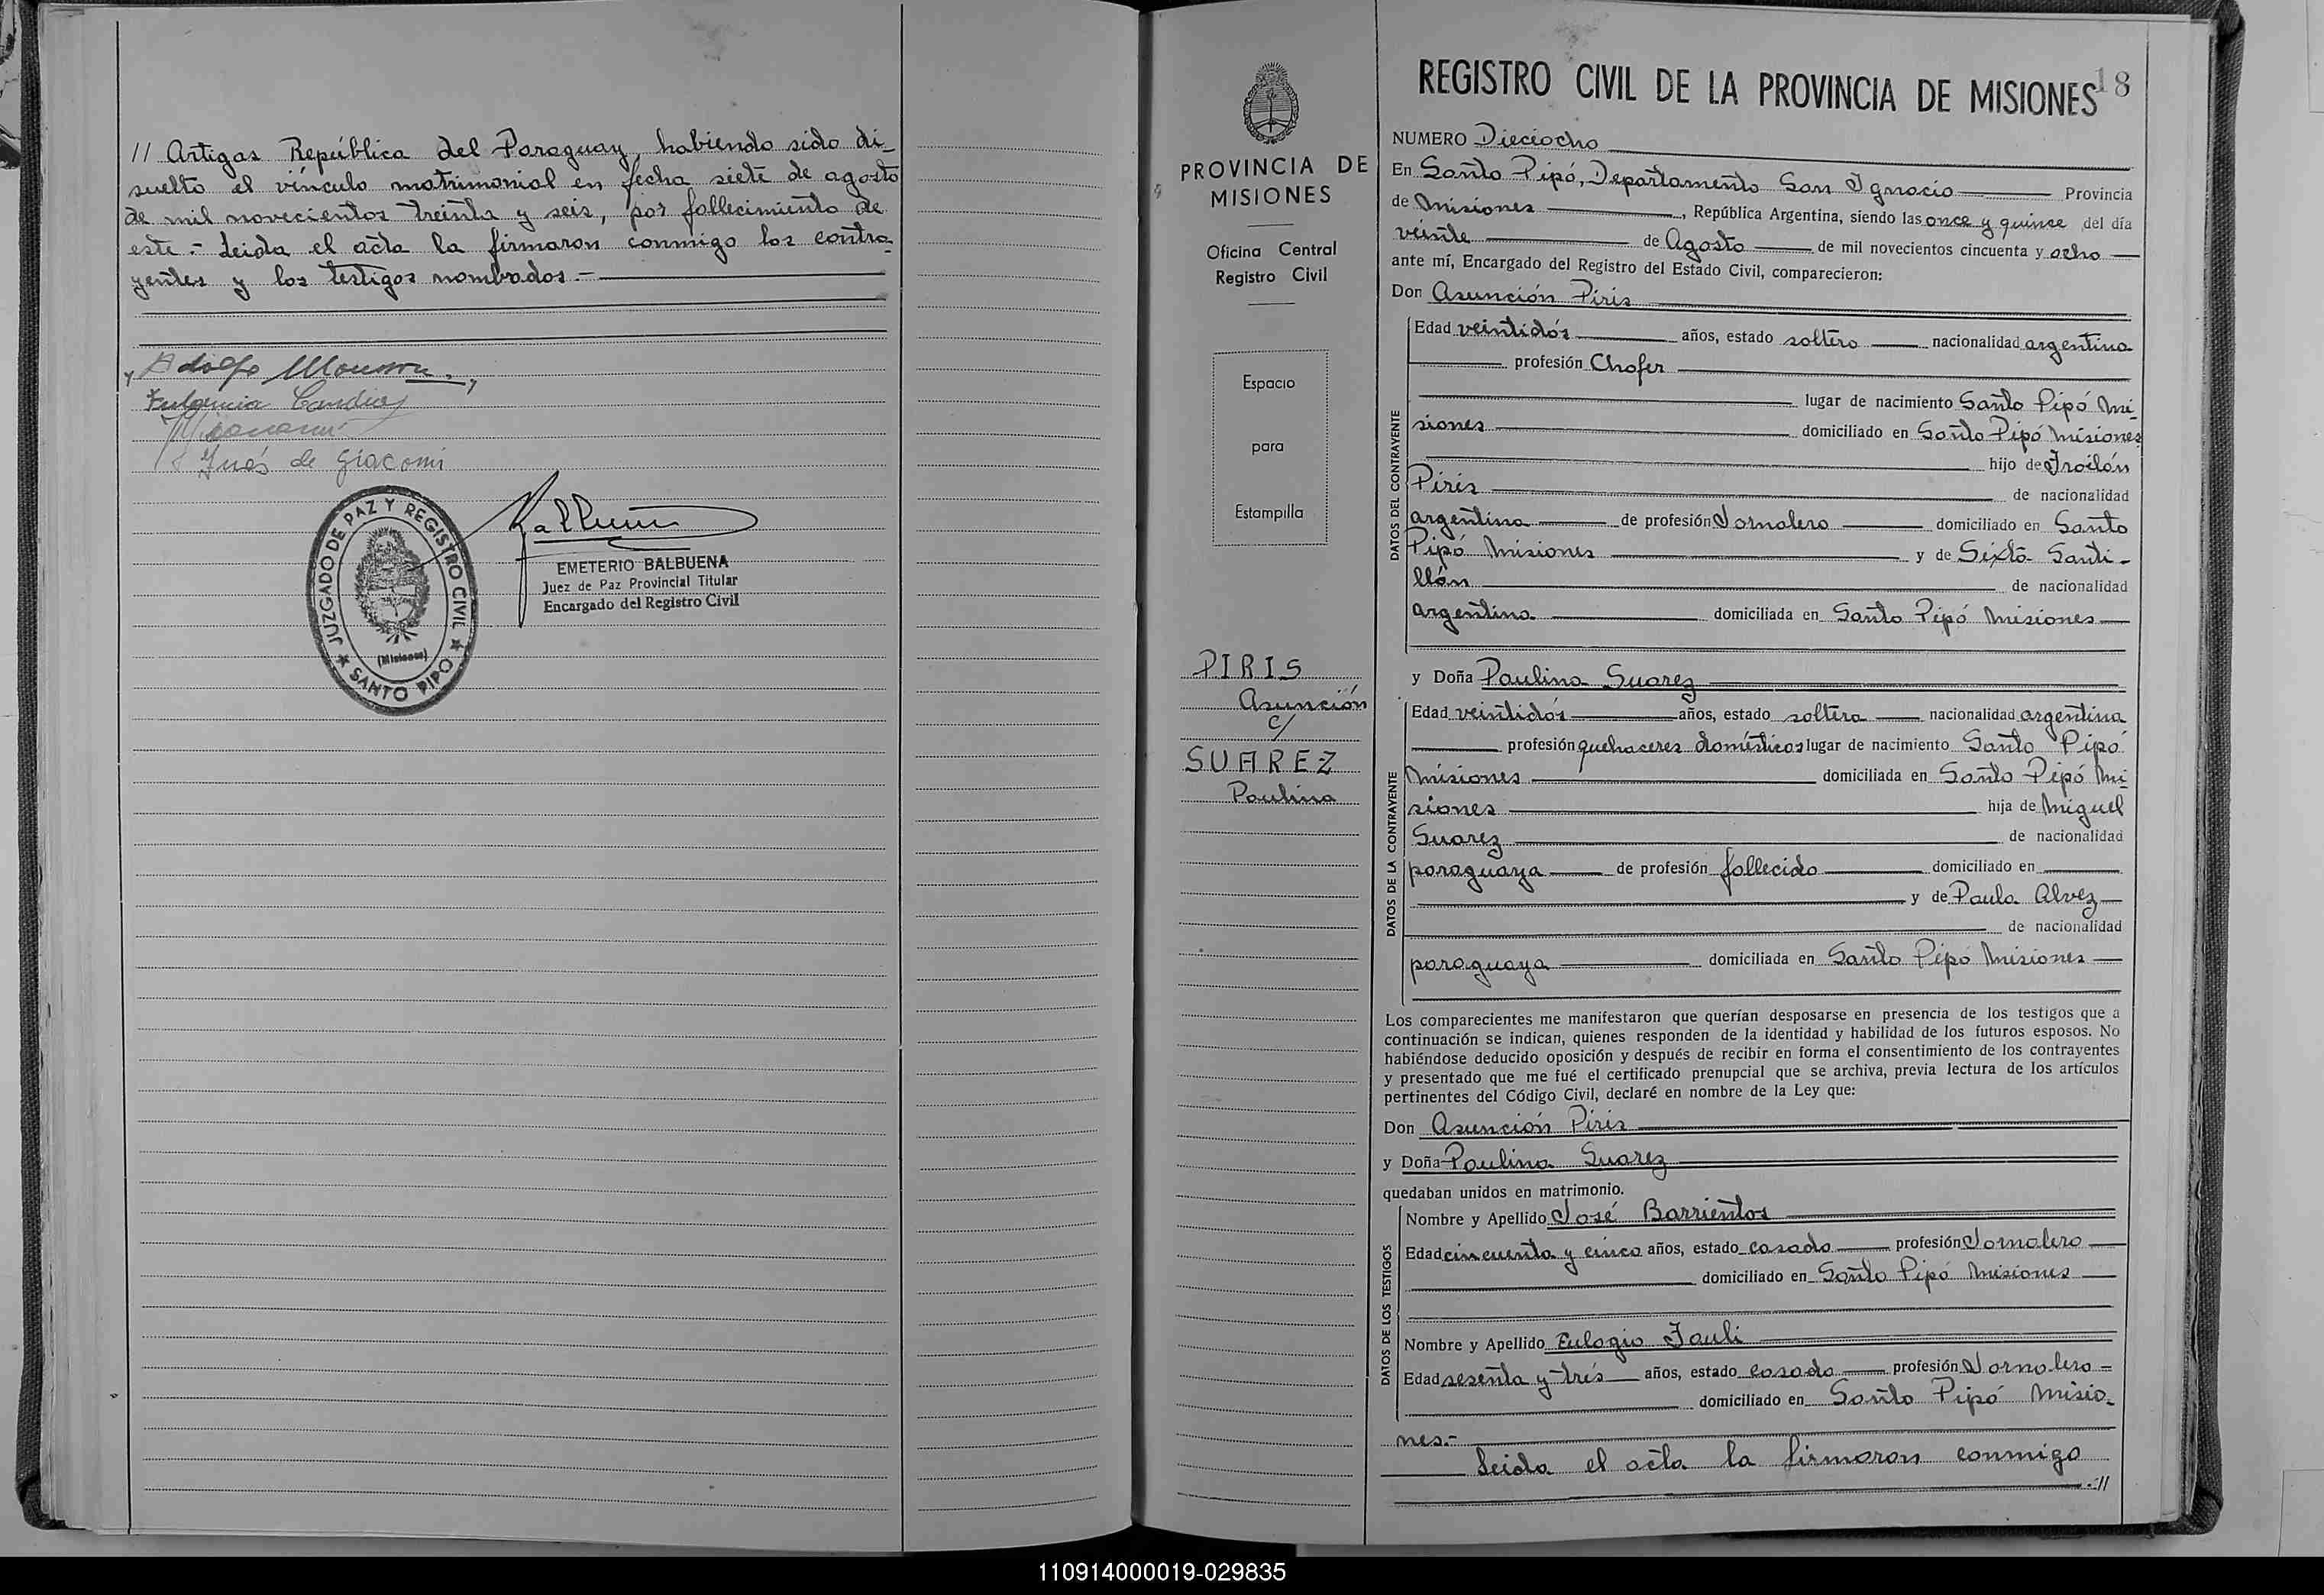 // Artigas República del Paraguay, habiendo sido di-
suelto el vínculo matrimonial en fecha siete de agosto
de mil novecientos treinta y seis, por fallecimiento de
este.- Leida el acta la firmaron conmigo los contra-
yentes y los testigos nombrados.-
Adolfo
Fulgencia Candia
Inés de Giacomi
JUZGADO DE PAZ Y REGISTRO CIVIL
(Misiones)
SANTO PIPO
EMETERIO BALBUENA
Juez de Paz Provincial Titular
Encargado del Registro Civil
PROVINCIA DE
MISIONES
Oficina Central
Registro Civil
Espacio
para
Estampilla
PIRIS
Asunción
c/
SUAREZ
Paulina
REGISTRO CIVIL DE LA PROVINCIA DE MISIONES 18
NUMERO Dieciocho
En Santo Pipó, Departamento San Ignacio Provincia
de Misiones, República Argentina, siendo las once y quince del día
veinte de Agosto de mil novecientos cincuenta y ocho
ante mí, Encargado del Registro del Estado Civil, comparecieron:
Don Asunción Piris
DATOS DEL CONTRAYENTE
Edad veintidós años, estado soltero nacionalidad argentina
profesión Chofer
lugar de nacimiento Santo Pipó Mi-
siones domiciliado en Santo Pipó Misiones
hijo de Troilón
Piris de nacionalidad
argentina de profesión Jornalero domiciliado en Santo
Pipó Misiones y de Sixta Santi-
llón de nacionalidad
argentina domiciliada en Santo Pipó Misiones
y Doña Paulina Suarez
DATOS DE LA CONTRAYENTE
Edad veintidós años, estado soltera nacionalidad argentina
profesión quehaceres domésticos lugar de nacimiento Santo Pipó
Misiones domiciliada en Santo Pipó Mi-
siones hija de Miguel
Suarez de nacionalidad
paraguaya de profesión fallecido domiciliado en
y de Paula Alvez
de nacionalidad
paraguaya domiciliada en Santo Pipó Misiones
Los comparecientes me manifestaron que querían desposarse en presencia de los testigos que a
continuación se indican, quienes responden de la identidad y habilidad de los futuros esposos. No
habiéndose deducido oposición y después de recibir en forma el consentimiento de los contrayentes
y presentado que me fué el certificado prenupcial que se archiva, previa lectura de los artículos
pertinentes del Código Civil, declaré en nombre de la Ley que:
Don Asunción Piris
y Doña Paulina Suarez
quedaban unidos en matrimonio.
DATOS DE LOS TESTIGOS
Nombre y Apellido José Barrientos
Edad cincuenta y cinco años, estado casado profesión Jornalero
domiciliado en Santo Pipó Misiones
Nombre y Apellido Eulogio Jauli
Edad sesenta y trés años, estado casado profesión Jornalero
domiciliado en Santo Pipó Misio-
nes.-
Leida el acta la firmaron conmigo
.-//
110914000019-029835